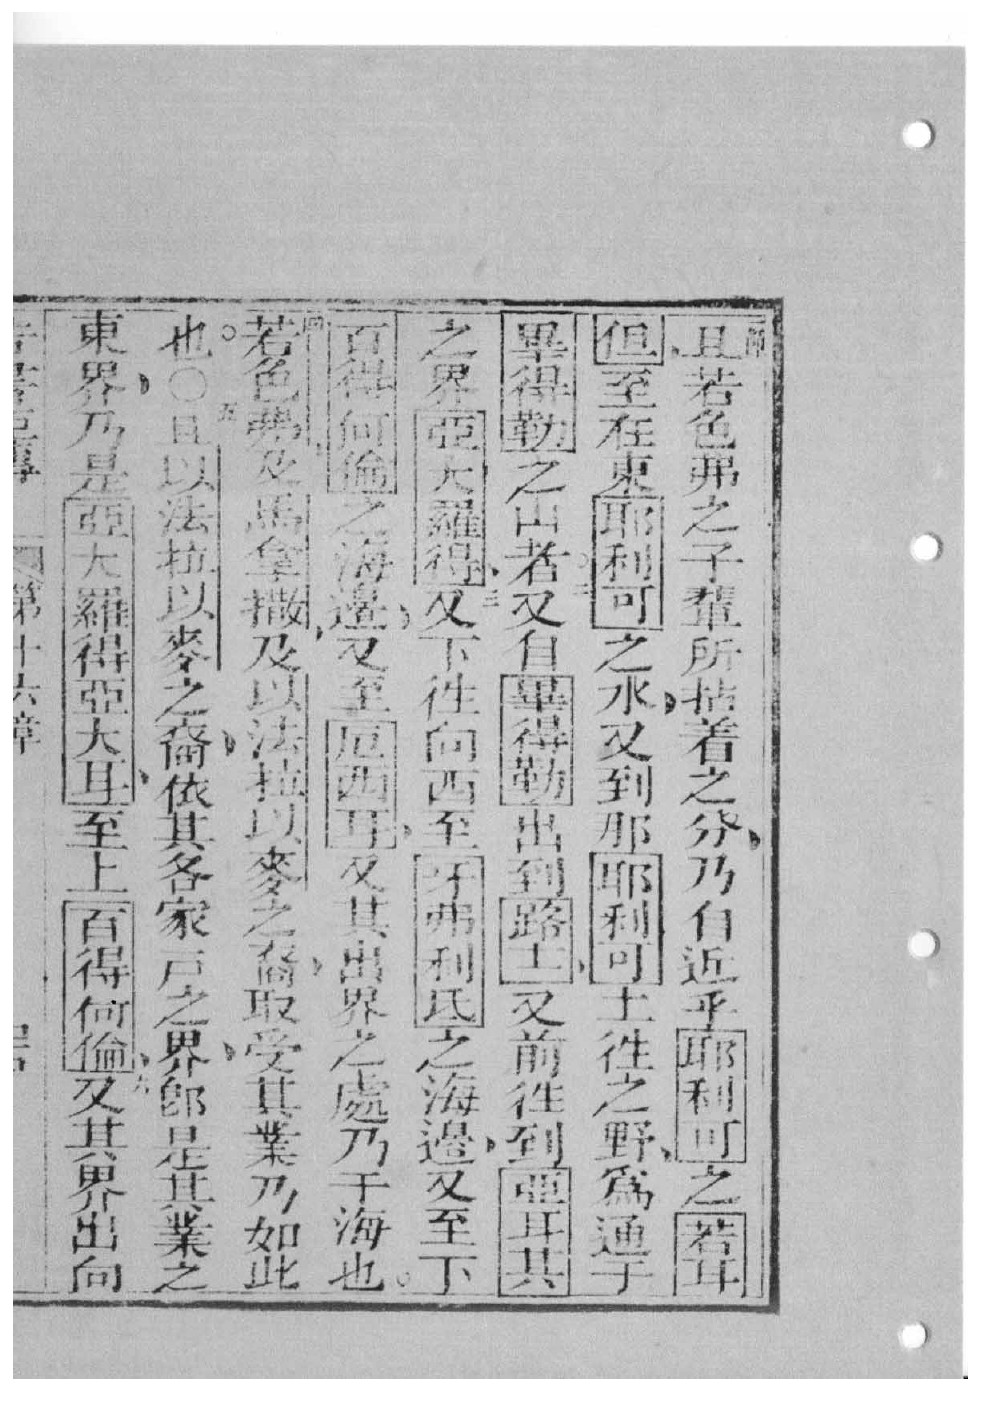 且若色弗之子輩所拈着之分乃自近乎耶利可之若耳
但至在東耶利可之水又到那耶利可土徃之野爲通于
畢得勒之山者二又自畢得勒出到路士又前徃到亞耳其
之界亞大羅得三又下徃向西至牙弗利氏之海邊又至下
百得何倫之海邊又至厄西耳又其出界之處乃于海也
四若色弗及馬拿撒及以法拉以麥之裔取受其業乃如此
也〇五且以法拉以麥之裔依其各家戸之界郎是其業之
東界乃是亞大羅得亞大耳至上百得何倫六及其界出向
第十六章